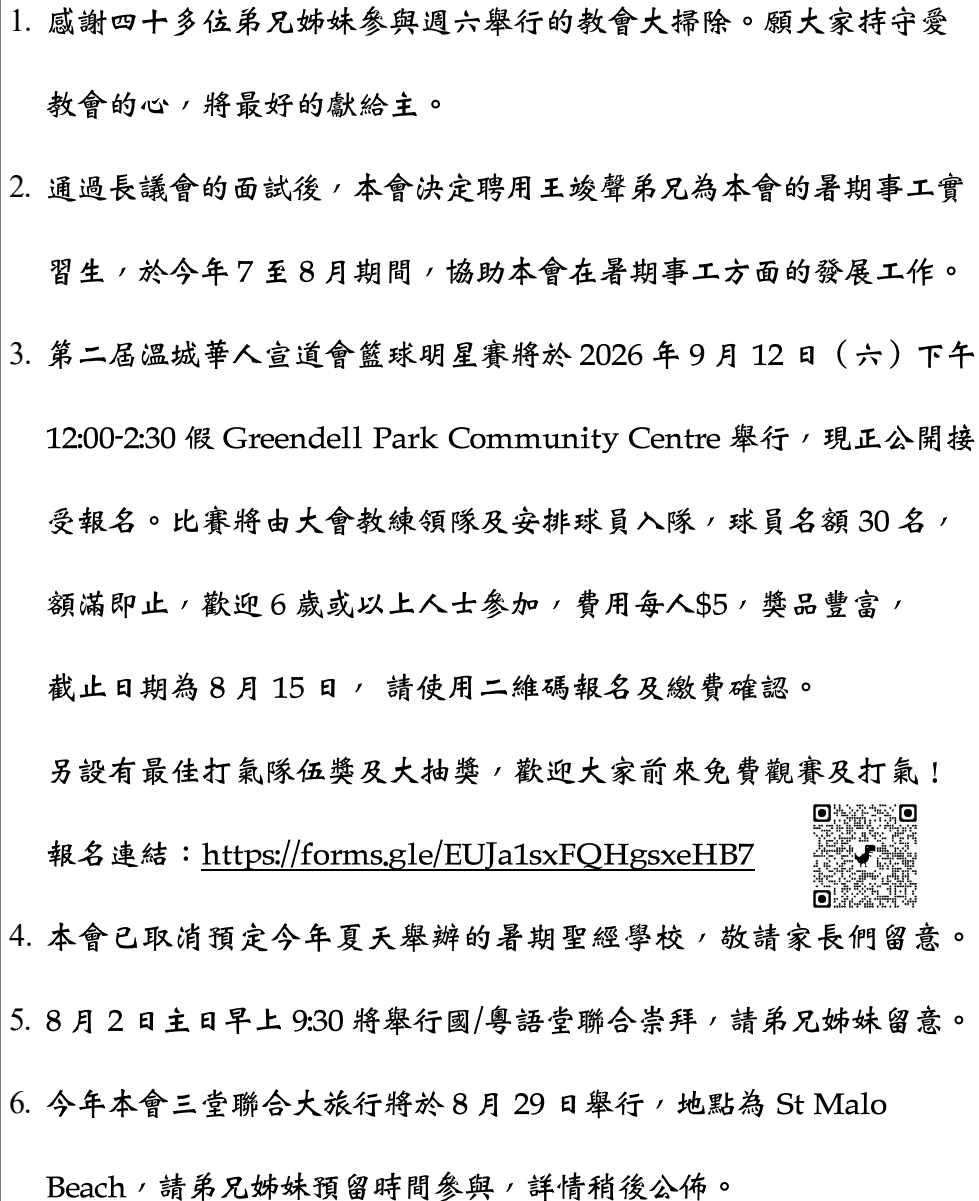 1. 感謝四十多位弟兄姊妹參與週六舉行的教會大掃除。願大家持守愛
教會的心，將最好的獻給主。
2. 通過長議會的面試後，本會決定聘用王竣聲弟兄為本會的暑期事工實
習生，於今年 7 至 8 月期間，協助本會在暑期事工方面的發展工作。
3. 第二屆溫城華人宣道會籃球明星賽將於 2026 年 9 月 12 日（六）下午
12:00-2:30 假 Greendell Park Community Centre 舉行，現正公開接
受報名。比賽將由大會教練領隊及安排球員入隊，球員名額 30 名，
額滿即止，歡迎 6 歲或以上人士參加，費用每人$5，獎品豐富，
截止日期為 8 月 15 日， 請使用二維碼報名及繳費確認。
另設有最佳打氣隊伍獎及大抽獎，歡迎大家前來免費觀賽及打氣！
報名連結：https://forms.gle/EUJa1sxFQHgsxeHB7
4. 本會已取消預定今年夏天舉辦的暑期聖經學校，敬請家長們留意。
5. 8 月 2 日主日早上 9:30 將舉行國/粵語堂聯合崇拜，請弟兄姊妹留意。
6. 今年本會三堂聯合大旅行將於 8 月 29 日舉行，地點為 St Malo
Beach，請弟兄姊妹預留時間參與，詳情稍後公佈。